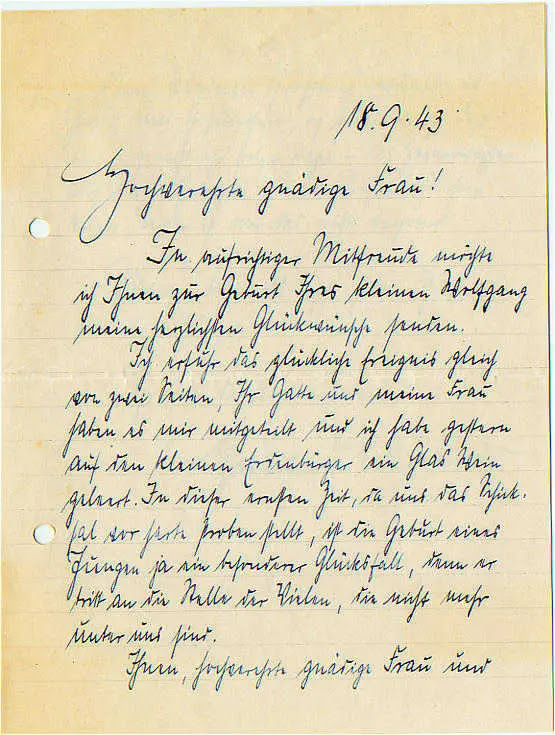 18.9.43
Hochverehrte gnädige Frau!
In aufrichtiger Mitfreude möchte
ich Ihnen zur Geburt Ihres kleinen Wolfgang
meine herzlichsten Glückwünsche senden.
Ich erfuhr das glückliche Ereignis gleich
von zwei Seiten, Ihr Gatte und meine Frau
haben es mir mitgeteilt und ich habe gestern
auf den kleinen Erdenbürger ein Glas Wein
geleert. In dieser ernsten Zeit, da uns das Schick-
sal vor harte Proben stellt, ist die Geburt eines
Jungen ja ein besonderer Glücksfall, denn er
tritt an die Stelle der Vielen, die nicht mehr
unter uns sind.
Ihnen, hochverehrte gnädige Frau und